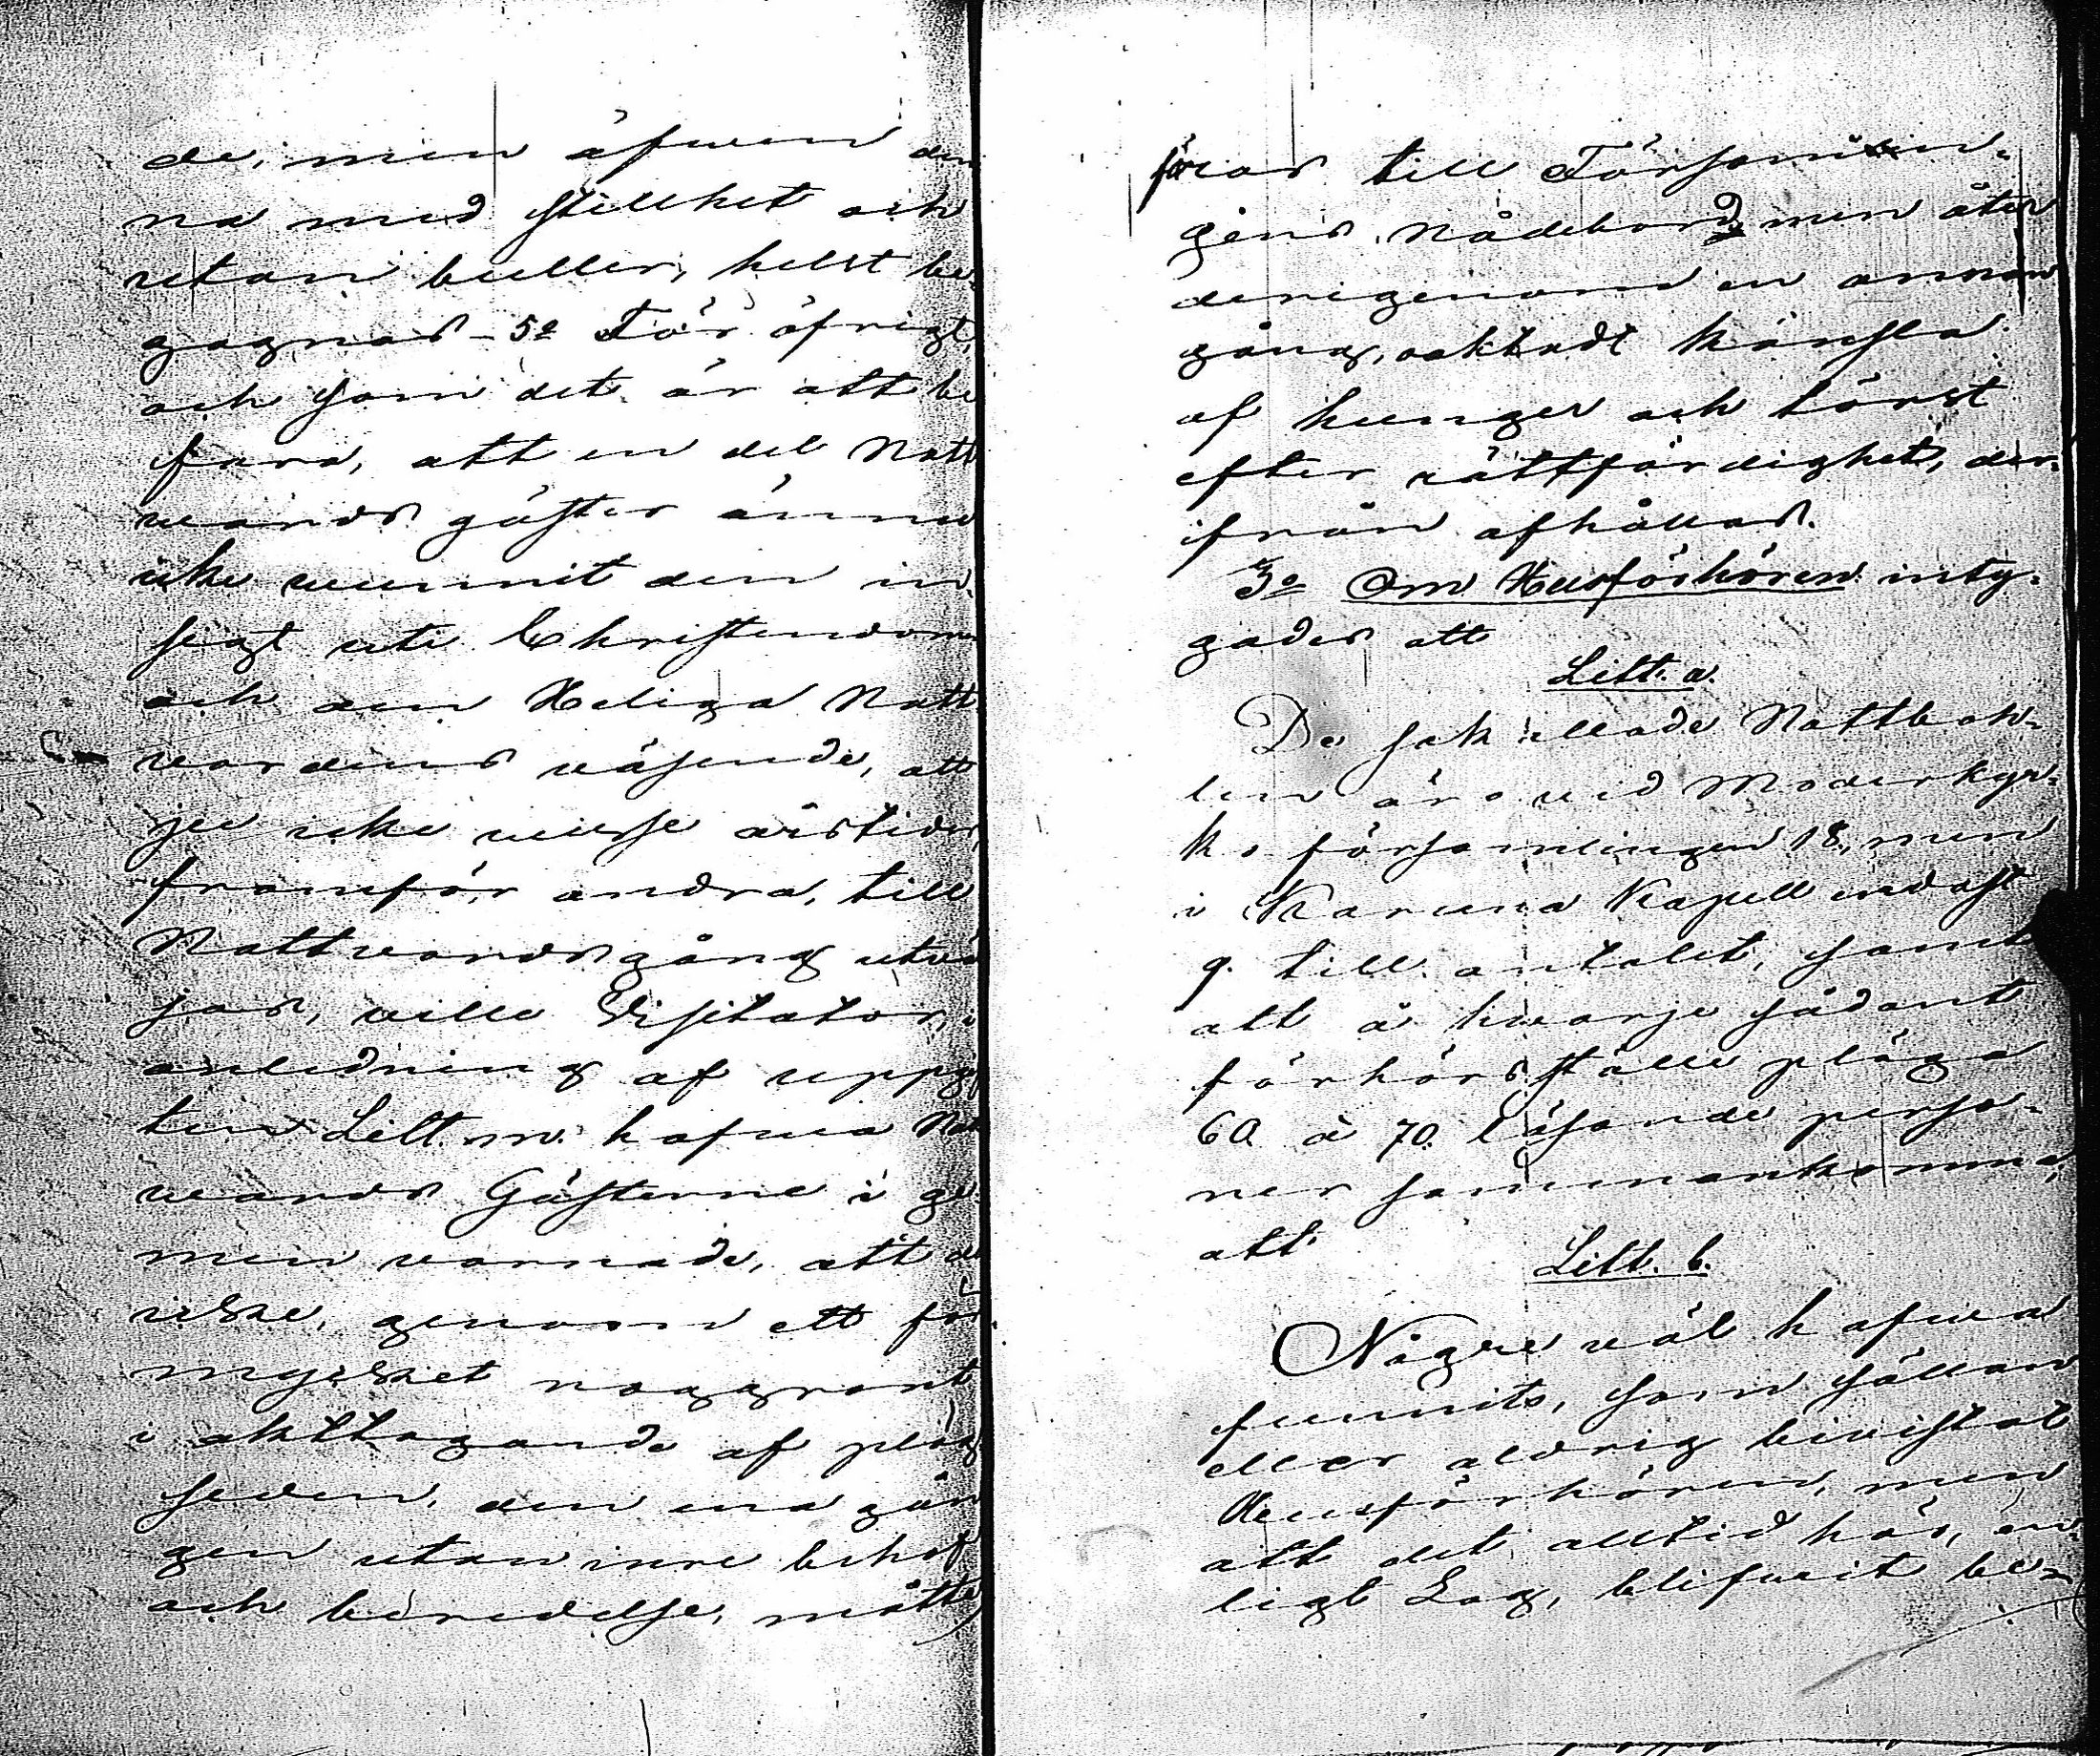 de, men äfwen den
na med stillhet och
utan buller, helst be
gagnas - 5o För öfrigt,
och som det är att be
fara, att en del Natt
wards gäster ännu
icke wunnit den in
sigt uti Christendom
och den Heliga Natt
vardens väsende, att
ju icke wisse årstider,
framför andra, till
Nattwardsgång utvä
jas, wille Visitator, i
anledning af uppgif
ten Litt. m. hafwa Nat
wards Gästerne i ge
men varnade, att de
icke, genom ett för
mycket noggrant
i akttagande af plög
seden, den ena gån
gen utan inre behof
och beredelse, måtte
föras till Församlin-
gens Nådebord, men åter
derigenom en annan
gång, oaktadt känsla
af hunger och törst
efter rättfärdighet, der-
ifrån afhållas.
3o Om Husförhören inty-
gades att
Litt. a.
De så kallade Nattbak-
len äro wid Moderkyr-
ko församlingen 18, men
i Karuna Kapell endast
9. till antalet, samt
att å hwarje sådant
förhörsställe pläga
60 à 70. läsande perso-
ner sammankomma,
att
Litt. b.
Någre wäl hafwa
funnits, som sällan
eller aldrig biwistat
Husförhören, men
att det alltid hos, en
ligt Lag, blifwit be-